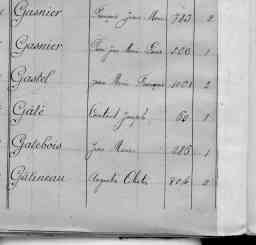 Gasnier François Jean Marie 783 2
Gasnier Pierre Jean Marie 200 1
Gastel Jean Marie François 1001 2
Gâté Constant Joseph 60 1
Gatebois Jean Marie 285 1
Gatineau Auguste 806 2